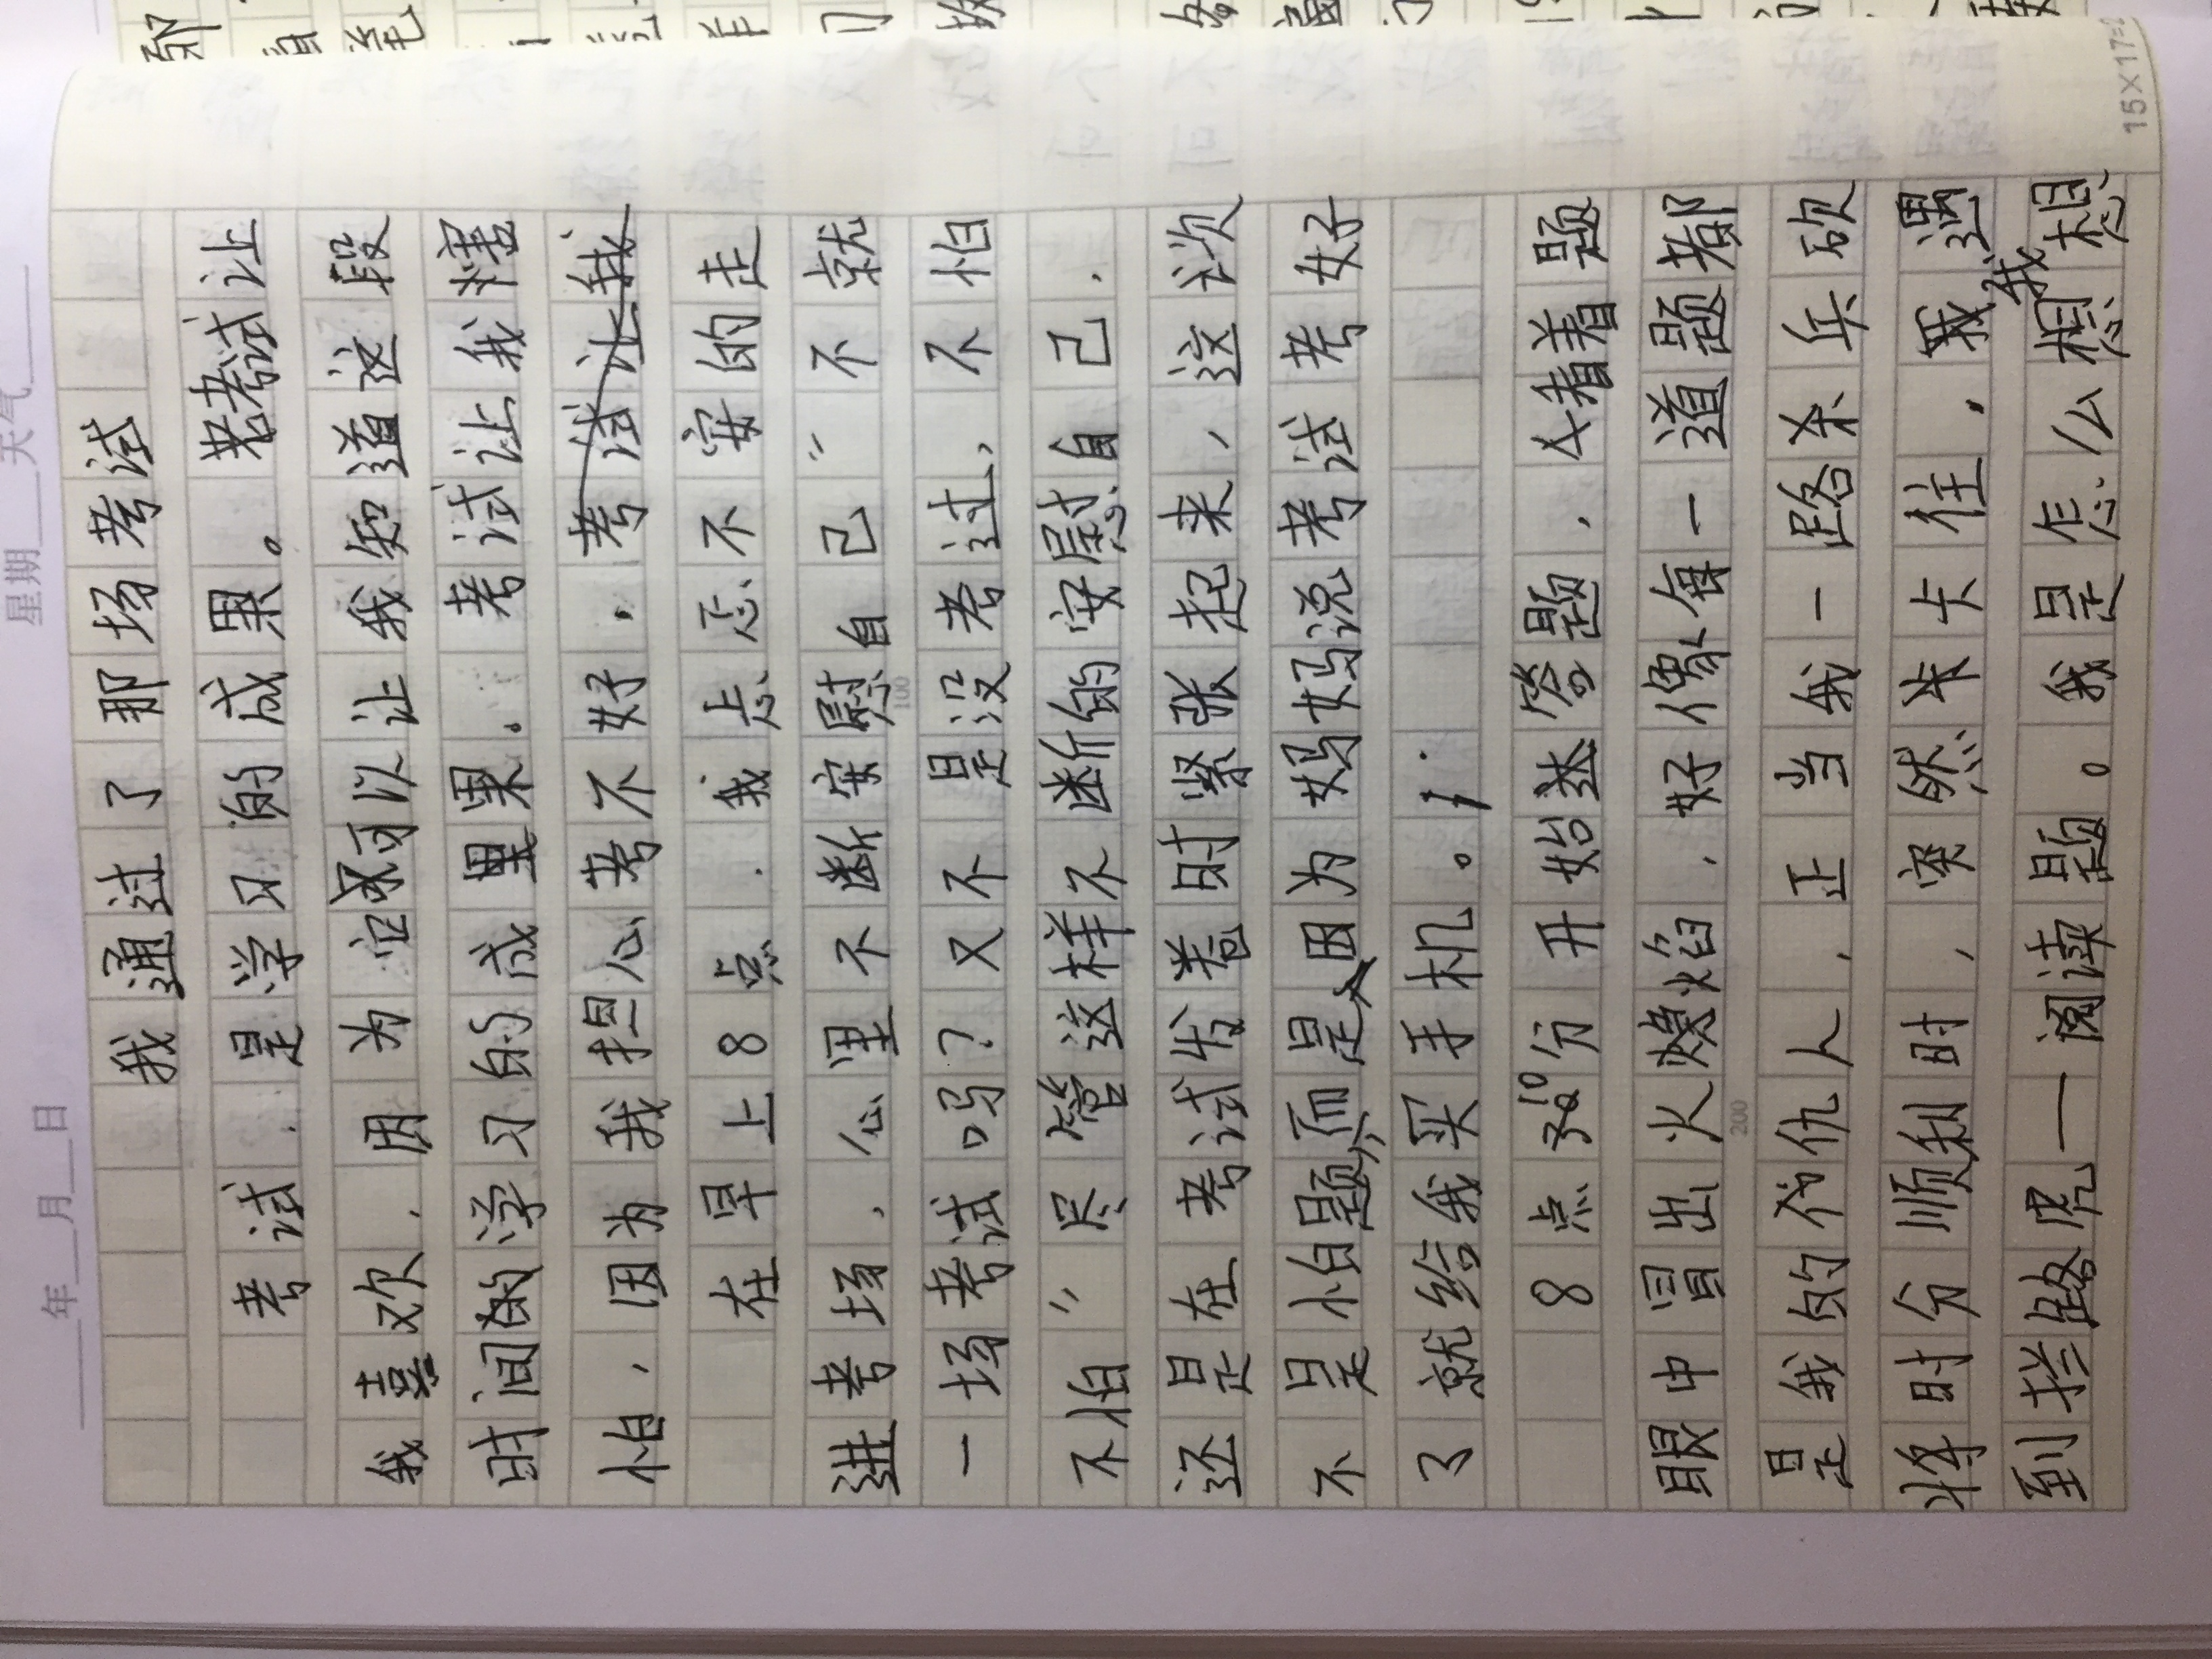 年 月 日 星期 天气
我通过了那场考试
考试,是学习的成果。考试让
我喜欢,因为它可以让我知道这段
时间的学习的成果。考试让我害
怕,因为我担心考不好。
在早上8点,我忐忑不安的走
进考场,心里不断安慰自己"不就
一场考试吗?又不是没考过,不怕
不怕"尽管这样不断的安慰自己,
还是在考试发卷时紧张起来,这次
不是怕题,而是因为妈妈说考试考好
了就给我买手机。
100
8点10分开始答题,看着题
眼中冒出火焰,好像每一道题都
是我的仇人,正当我一路杀兵砍
将时分顺利时,突然卡住,我遇
到拦路虎——阅读题。我是怎么想我想
200
15×17=2